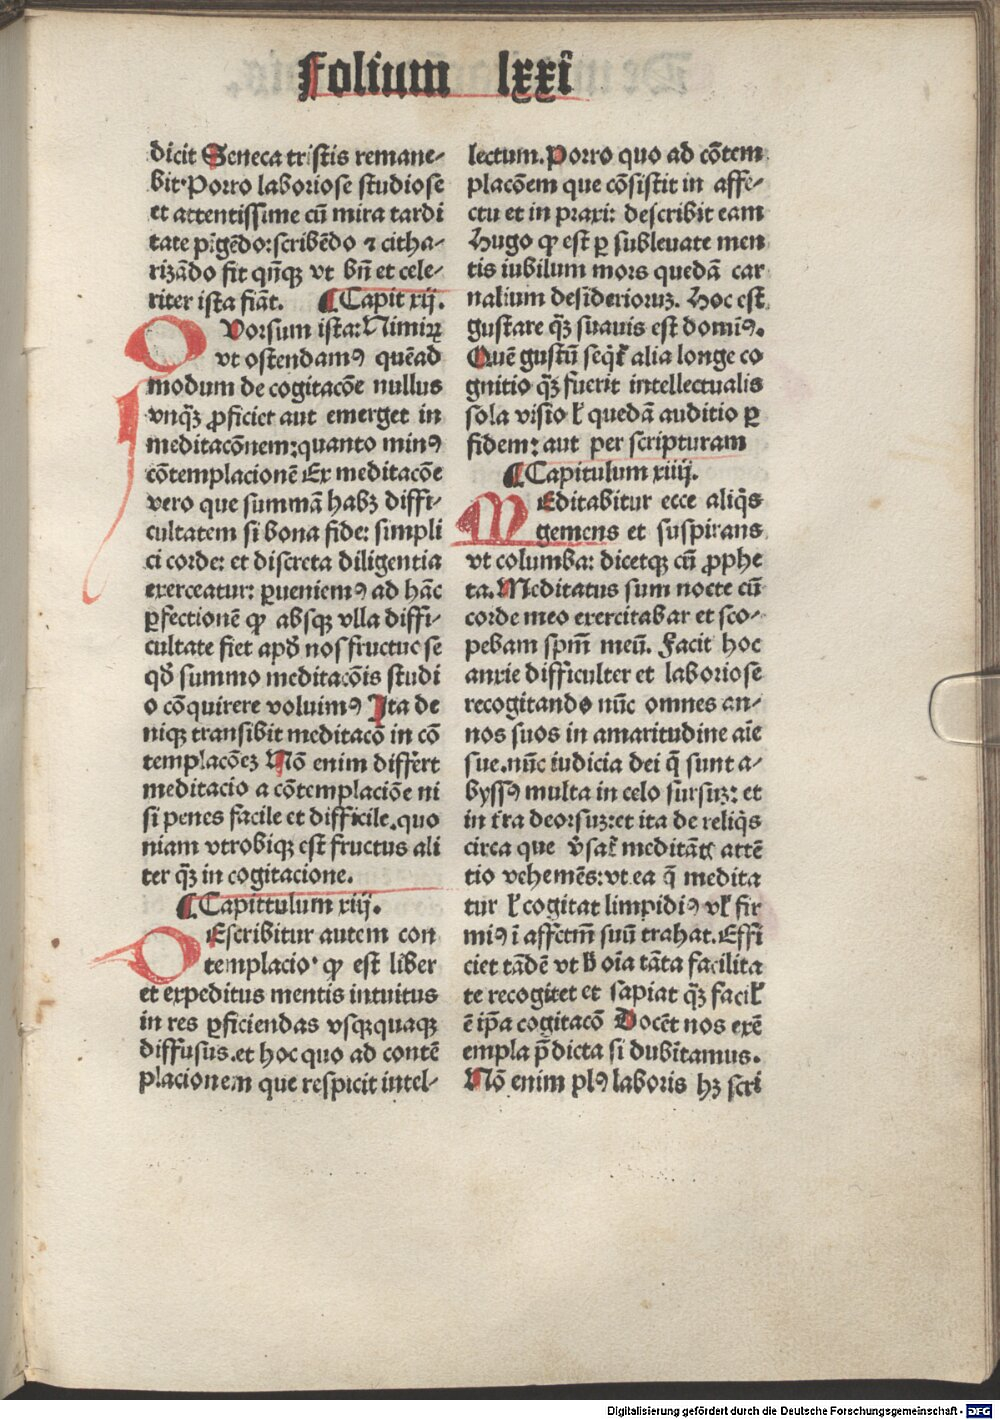 Folium lxxi
dicit Seneca tristis remane-
bit·Porro laboriose studiose
et attentissime cū mira tardi
tate pīgēdo:scribēdo ⁊ citha-
rizādo fit qn̄qꝫ vt bn̄ et cele-
riter ista fiāt. ¶Capit xij.
QVorsum ista:Nimiꝝ
vt ostendamꝰ quēad
modum de cogitacōe nullus
vnq̄ꝫ ꝓficiet aut emerget in
meditacōnem:quanto minꝰ
cōtemplacionē Ex meditacōe
vero que summā habꝫ diffi-
cultatem si bona fide: simpli
ci corde: et discreta diligentia
exerceatur: ꝑueniemꝰ ad hāc
ꝑfectionē ꝙ absqꝫ vlla diffi-
cultate fiet apđ nos fructuose
qđ summo meditacōis studi
o cōquirere voluimꝰ Ita de
niqꝫ transibit meditacō in cō
templacōeꝫ Nō enim differt
meditacio a cōtemplaciōe ni
si penes facile et difficile.quo
niam vtrobiqꝫ est fructus ali
ter q̄ꝫ in cogitacione.
¶Capittulum xiij.
DEscribitur autem con
templacio· ꝙ est liber
et expeditus mentis intuitus
in res ꝑficiendas vsqꝫquaqꝫ
diffusus.et hoc quo ad contē
placionem que respicit intel-
lectum.Porro quo ad cōtem
placōem que cōsistit in affe-
ctu et in praxi: describit eam
Hugo ꝙ est ꝑ subleuate men
tis iubilum mors quedā car
nalium desiderioruꝫ. Hoc est
gustare q̄ꝫ suauis est domīꝰ.
Quē gustū seq̄ꝉ alia longe co
gnitio q̄ꝫ fuerit intellectualis
sola visio ꝉ quedā auditio ꝑ
fidem: aut per scripturam
¶Capitulum xiiij.
MEditabitur ecce aliq̄s
gemens et suspirans
vt columba: dicetqꝫ cū ꝓphe
ta.Meditatus sum nocte cū
corde meo exercitabar et sco-
pebam spm̄ meū. Facit hoc
anxie difficulter et laboriose
recogitando nūc omnes an-
nos suos in amaritudine aīe
sue.nūc iudicia dei q̄ sunt a-
byssꝰ multa in celo sursuꝫ: et
in t̄ra deorsuꝫ:et ita de reliq̄s
circa que v̄saꝉ meditāt attē
tio vehemēs:vt ea q̄ medita
tur ꝉ cogitat limpidiꝰ vꝉ fir
miꝰ ī affectm̄ suū trahat.Effi
ciet tādē vt oīa tāta facilita
te recogitet et sapiat q̄ꝫ faciꝉ
ē ip̄a cogitacō Docēt nos exē
empla p̄dicta si dubitamus.
Nō enim plꝰ laboris hꝫ scri
Digitalisierung gefördert durch die Deutsche Forschungsgemeinschaft - DFG